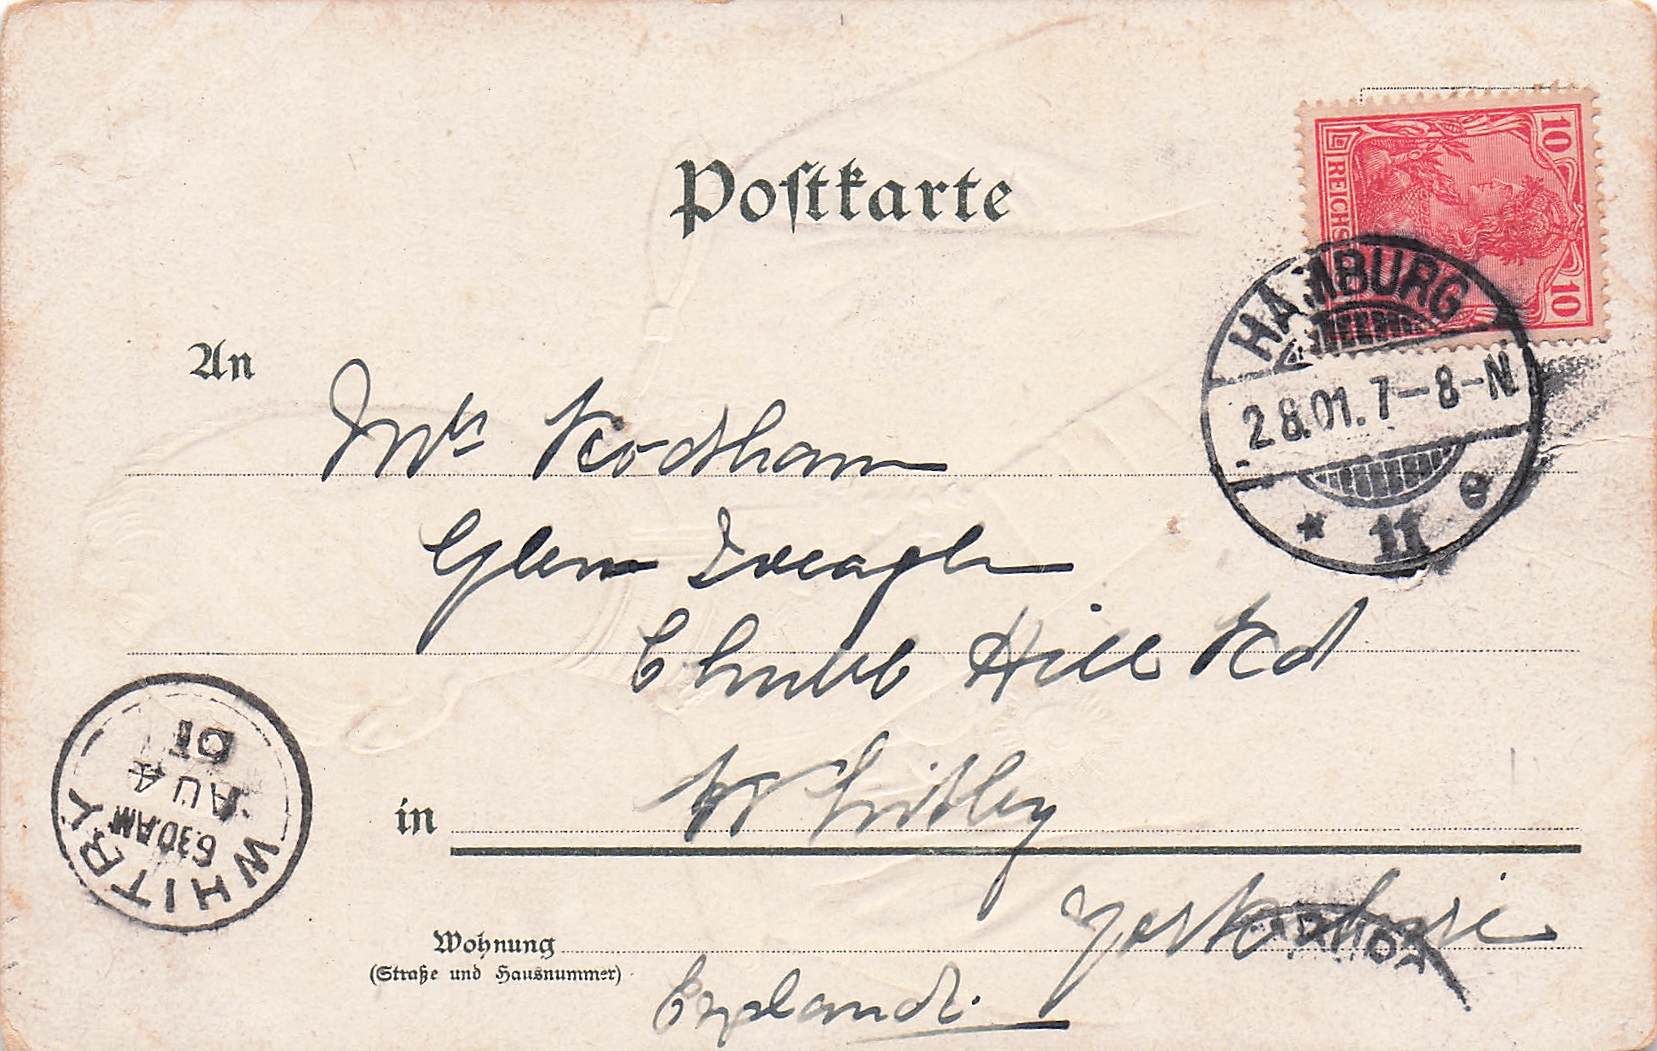 Postkarte
10 REICHS 10
HAMBURG
2.8.01. 7-8-N
* 11 e
An
Mrs Rodham
Glen Iveagh
Chubb Hill Rd
in Whitby
Yorkshire
Wohnung
(Straße und Hausnummer)
England.
WHITBY
6.30 AM
AU 4
01